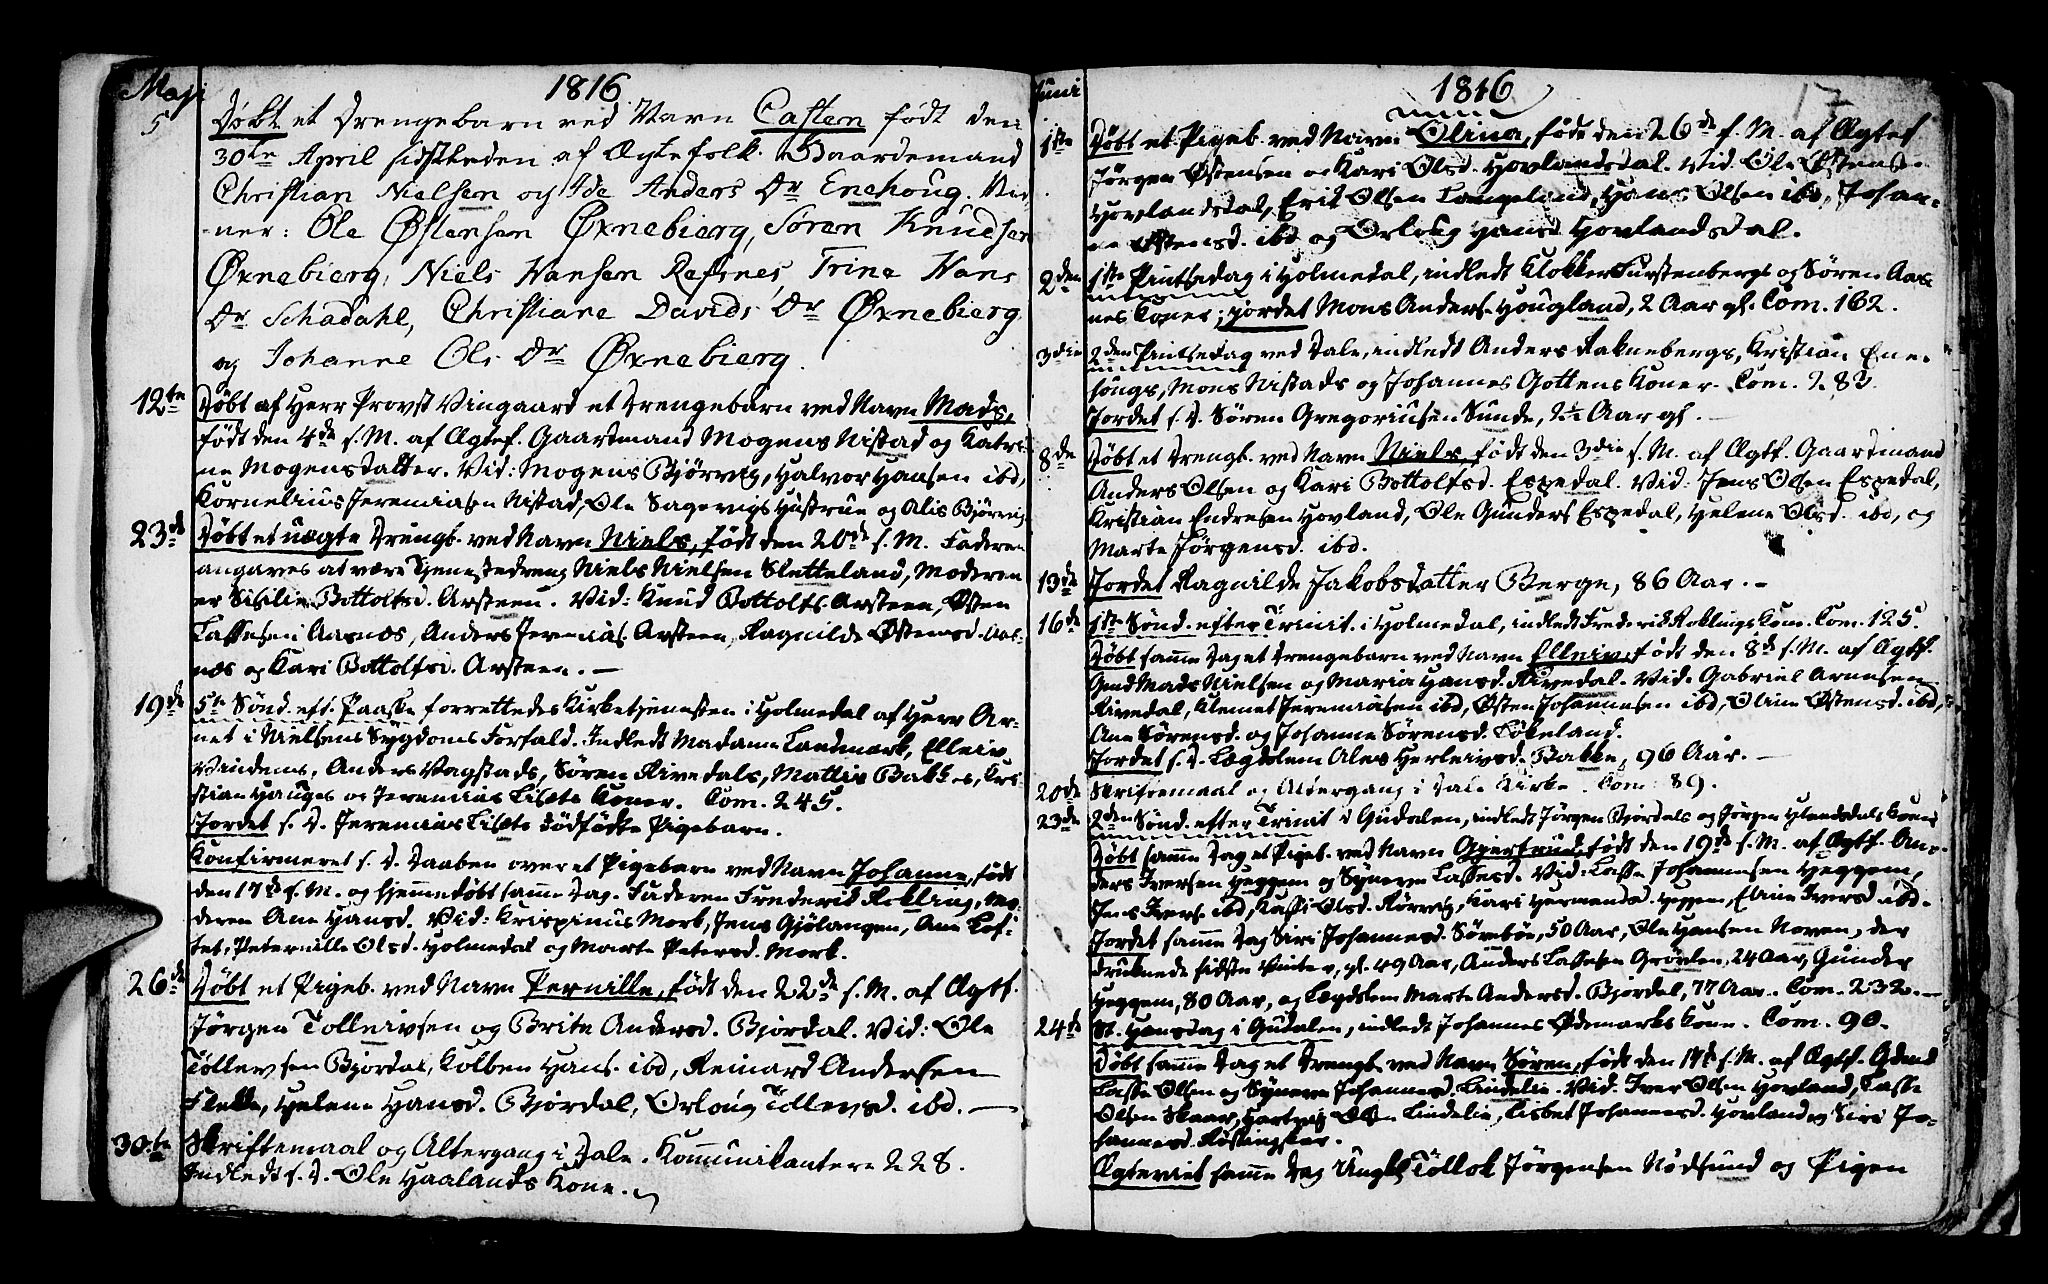 Maji 1816
5 Døbt et Drengebarn ved Navn Casten født den
30te April sidstleden af Ægtefolk. Gaardemand
Christian Nielsen og Ide Anders Dr Enehoug. Vid
-ner: Ole Østensen Øxnebierg, Søren Knudsen
Øxnebierg, Niels Hansen Refsnes, Trine Hans
Dr Schadahl, Christiane Davids Dr Øxnebierg
og Johanne Ols Dr Øxnebierg.
12te Døbt af Herr Provst Vingaard et Drengebarn ved Navn Mads,
født den 4de s. M. af Ægtef. Gaardmand Mogens Nistad og Katri-
ne Mogensdatter. Vid: Mogens Bjørvig, Halvor Hansen ibd,
Kornelius Jeremiasen Nistad, Ole Sagevigs Hustrue og Alis Bjørvig
23de Døbt et uægte Drengb. ved Navn Niels, født den 20de s. M. Faderen
angaves at være Tjenestedreng Niels Nielsen Sletteland, Moderen
er Sisilie Bottolfsd. Arsteen. Vid: Knud Bottolfs. Arsteen, Østen
Lassesen Aarnæs, Anders Jeremias. Arsteen, Ragnilde Østensd. Aar-
næs og Kari Bottolfsd. Arsteen. —
19de 5te Sønd. eft. Paaske forrettedes Kirketjenesten i Holmedal af Herr Ar-
net i Nielsens Sygdoms Forfald. Indledt Madame Landmark, Elleiv
Vindens, Anders Vagstads, Søren Rivedals, Mattis Bakkes, Kri-
stian Hauges og Jeremias Lisets Koner. Com. 245.
Jordet s. D. Jeremias Lisets dødfødte Pigebarn.
Konfirmeret s. D. Daaben over et Pigebarn ved Navn Johanne, født
den 17de s. M. og hjemmedøbt samme Dag. Faderen Frederik Rokling, Mo-
deren Ane Hansd. Vid: Krispinus Mork, Jens Gjølangen, Ane Lof-
tet, Peternille Olsd. Holmedal og Marte Petersd. Mork.
26de Døbt et Pigeb. ved Navn Pernille, født den 22de s. M. af Ægtf.
Jørgen Tolleivsen og Brite Andersd. Bjordal. Vid: Ole
Tollevsen Bjordal, Kolben Hans. ibd, Reinard Andersen
Flekke, Helene Hansd. Bjordal, Orloug Tollevsd. ibd. —
30te Skriftemaal og Altergang i Dale. Kommunikantere 228.
Indledt s. D. Ole Haalands Kone.
Juni 1816 17
1ste Døbt et Pigeb. ved Navn Olina, født den 26de f. M. af Ægtef
Jørgen Østensen og Kari Olsd. Hovlandsdal. Vid. Ole Østensen
Hovlandsdal, Erik Olsen Langeland, Hans Olsen ibd, Johan-
ne Østensd. ibd og Orloug Hansd. Hovlandsdal.
2den 1ste Pintsedag i Holmedal, indledt Klokker Furstenbergs og Søren Aar-
nes Koner; jordet Mons Anders. Hougland, 2 Aar gl. Com. 162.
3die 2den Pintsedag ved Dale, indledt Anders Faknebergs, Kristian Ene-
hougs, Mons Nistads og Johannes Gottens Koner. Com. 283.
Jordet s. D. Søren Gregoriusen Sunde, 2½ Aar gl. —
8de Døbt et Drengb. ved Navn Niels, født den 3die s. M. af Ægtf. Gaardmand
Anders Olsen og Kari Bottolfsd. Espedal. Vid: Jens Olsen Espedal,
Kristian Endresen Hovland, Ole Gunders. Espedal, Helene Olsd. ibd, og
Marte Jørgensd. ibd.
13de Jordet Ragnilde Jakobsdatter Berge, 86 Aar. —
16de 1ste Sønd. efter Trinit. i Holmedal, indledt Frederik Roklings Kone. Com. 125.
Døbt samme Dag et Drengebarn ved Navn Elleiv, født den 8de s. M. af Ægtf.
Gmd Mads Nielsen og Maria Hansd. Rivedal. Vid: Gabriel Arnesen
Rivedal, Klemet Jeremiasen ibd, Østen Johannesen ibd, Oline Østensd. ibd,
Ane Sørensd. og Johanne Sørensd. Løkeland.
Jordet s. D. Lægdslem Ales Herleivsd. Bakke, 96 Aar. —
20de Skriftemaal og Altergang i Dale Kirke. Com. 89.
23de 2den Sønd. efter Trinit i Gudalen, indledt Jørgen Bjordals og Jørgen Hlandsdals Koner
Døbt samme Dag et Pigeb. ved Navn Gjertrud, født den 19de s. M. af Ægtf. An-
ders Iversen Heggem og Synneve Lassesd. Vid: Lasse Johannesen Heggem,
Jens Ivers. ibd, Olsd. Rørvig, Kari Hermundsd. Heggem, Eline Iversd. ibd.
Jordet samme Dag Siri Johannesd. Sørebøe, 50 Aar, Ole Hansen Noven, der
druknede sidste Vinter, gl. 49 Aar, Anders Lassesen Grøvlen, 24 Aar, Gunder
Heggem, 80 Aar, og Lægdslem Marte Andersd. Bjordal, 77 Aar. Com. 232. —
24de St. Hansdag i Gudalen, indledt Johannes Ødemarks Kone. Com. 90.
Døbt samme Dag et Drengb. ved Navn Søren, født den 17de s. M. af Ægtf. Gdmd
Lasse Olsen og Synneve Johannesd. Lindelie. Vid. Iver Olsen Hovland, Lasse
Olsen Skaar, Hartvig Olsen Lindelie, Lisbet Johannesd. Hovland og Siri Jo-
hannesd.
Ægteviet samme Dag Ungk. Tollok Jørgensen Nødsund og Pigen